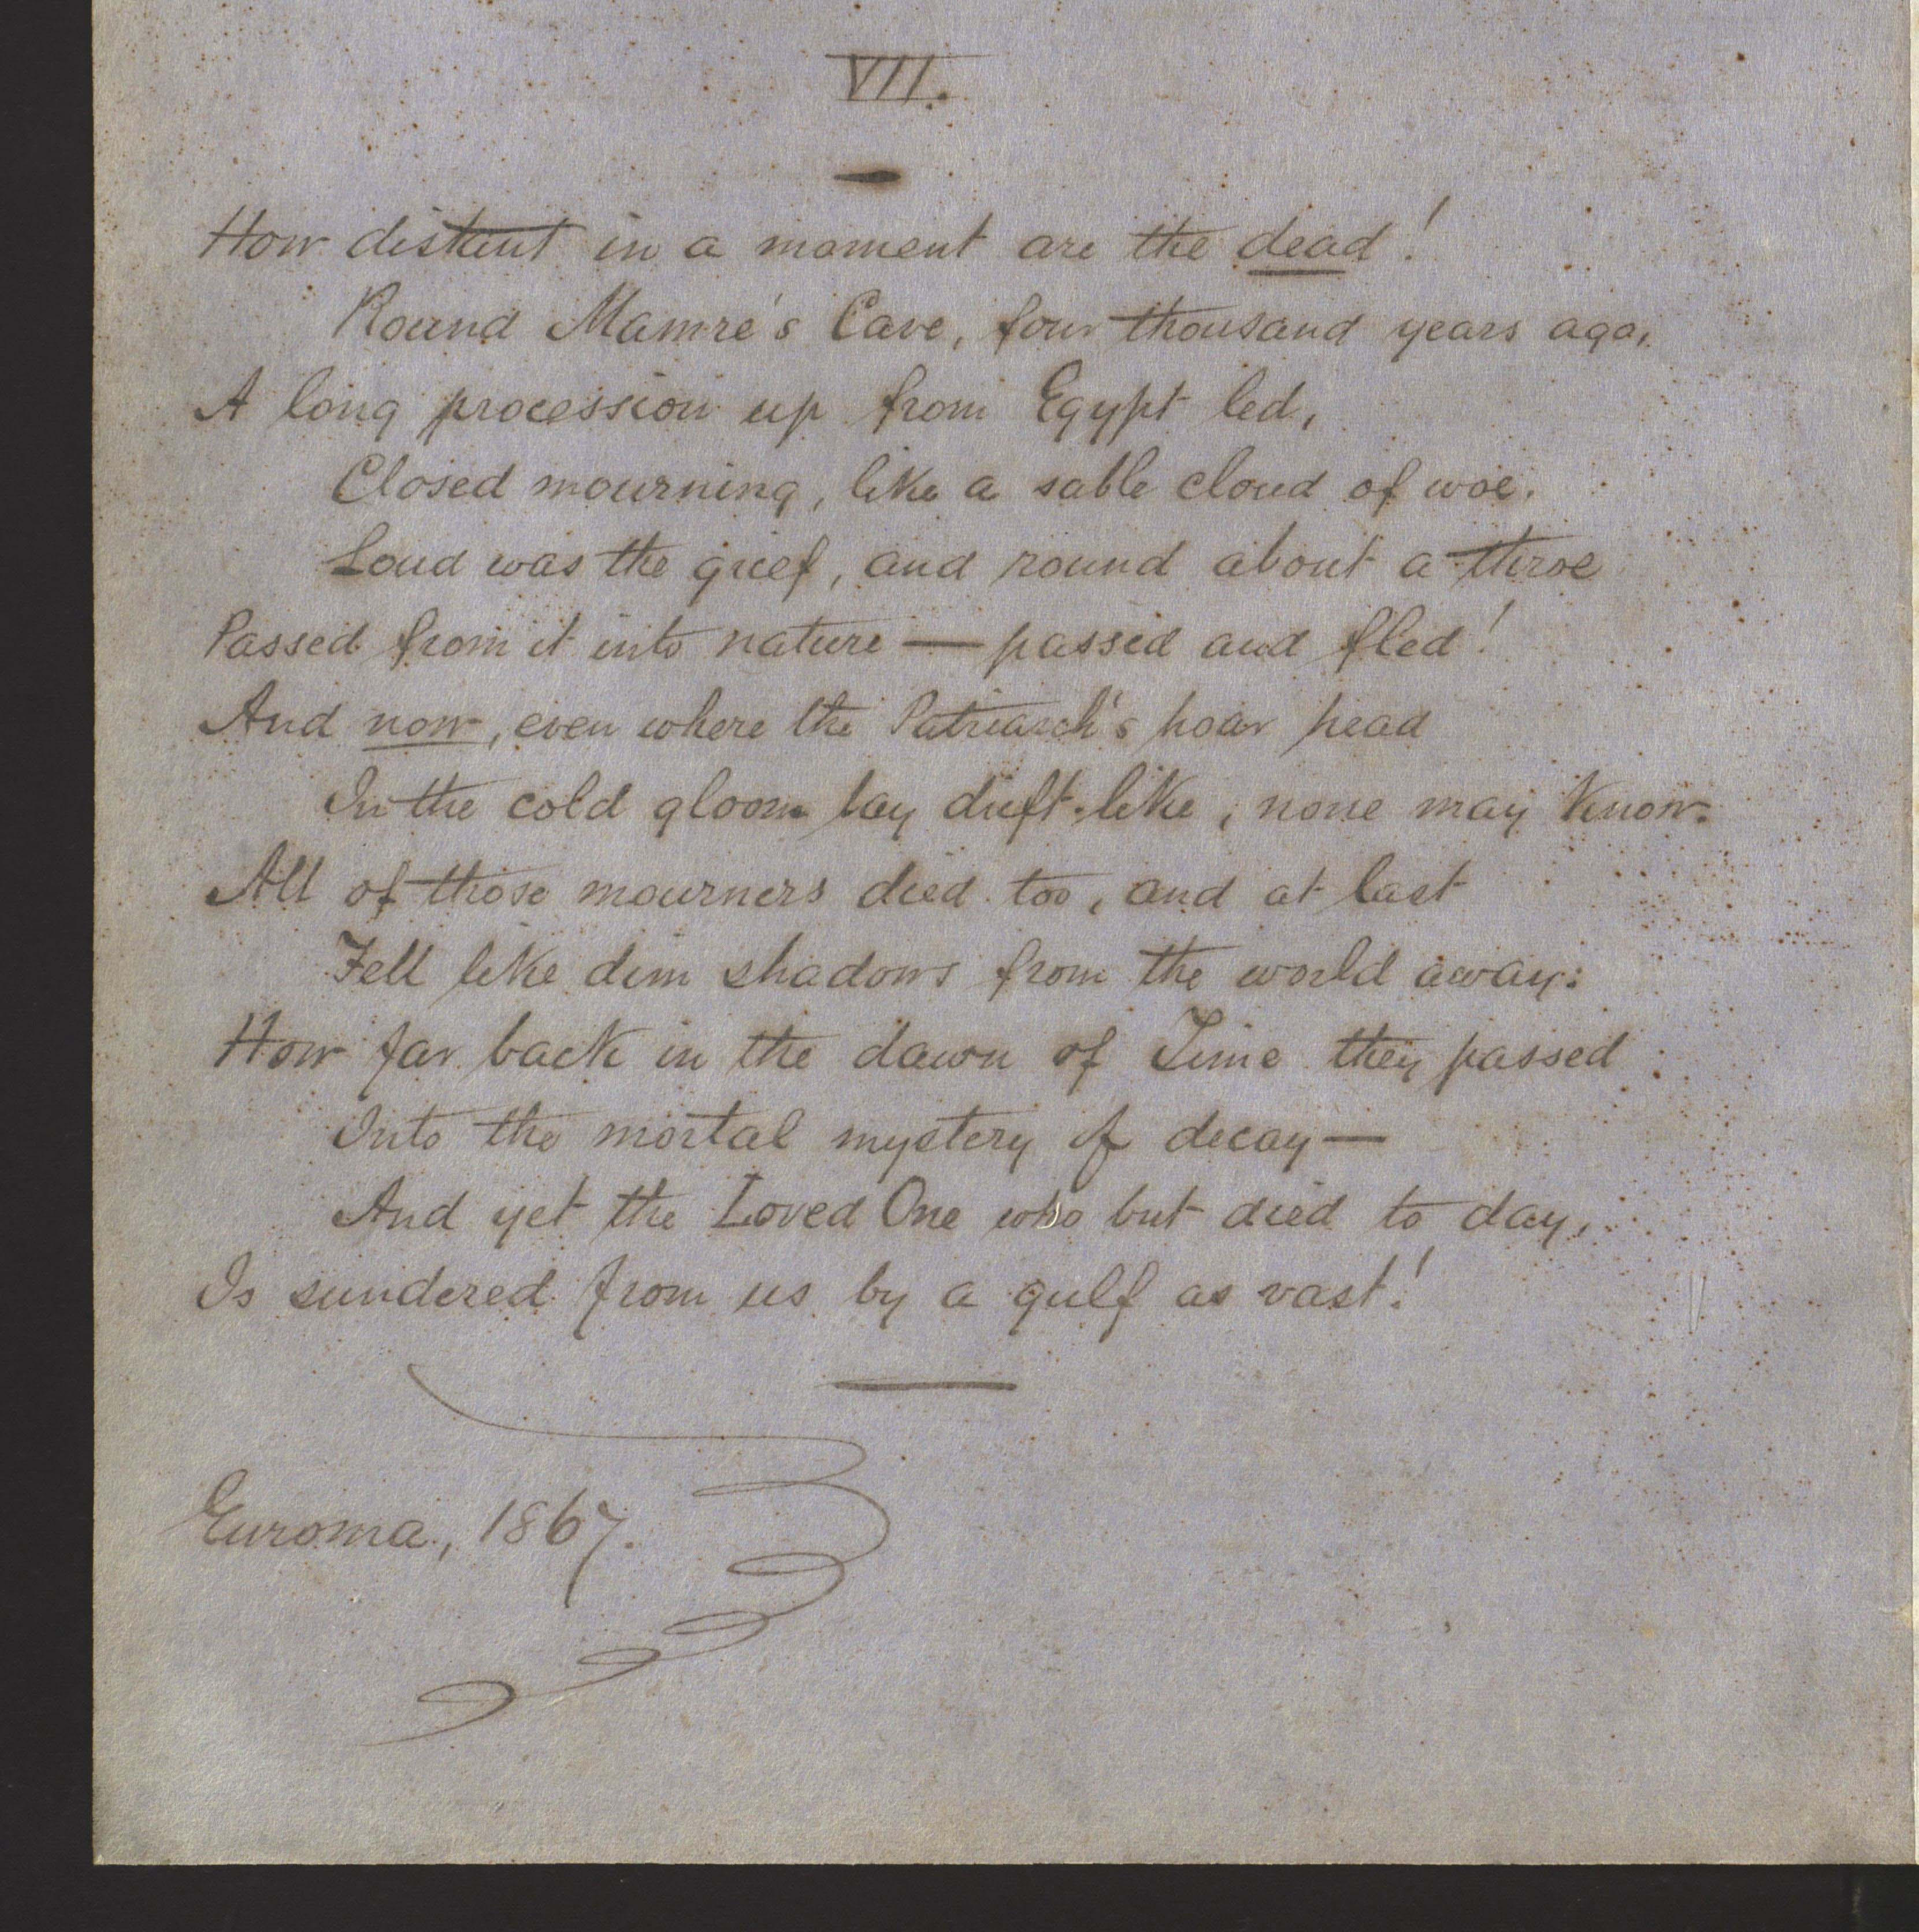 VII.
How distant in a moment are the dead!
Round Mamre's Cave, four thousand years ago,
A long procession up from Egypt led,
Closed mourning, like a sable cloud of woe.
Loud was the grief, and round about a throe
Passed from it into nature — passed and fled!
And now, even where the Patriarch's hoar head
In the cold gloom lay drift-like, none may know.
All of those mourners died too, and at last
Fell like dim shadows from the world away:
How far back in the dawn of Time they passed
Into the mortal mystery of decay —
And yet the Loved One who but died to day,
Is sundered from us by a gulf as vast!
Euroma, 1867.